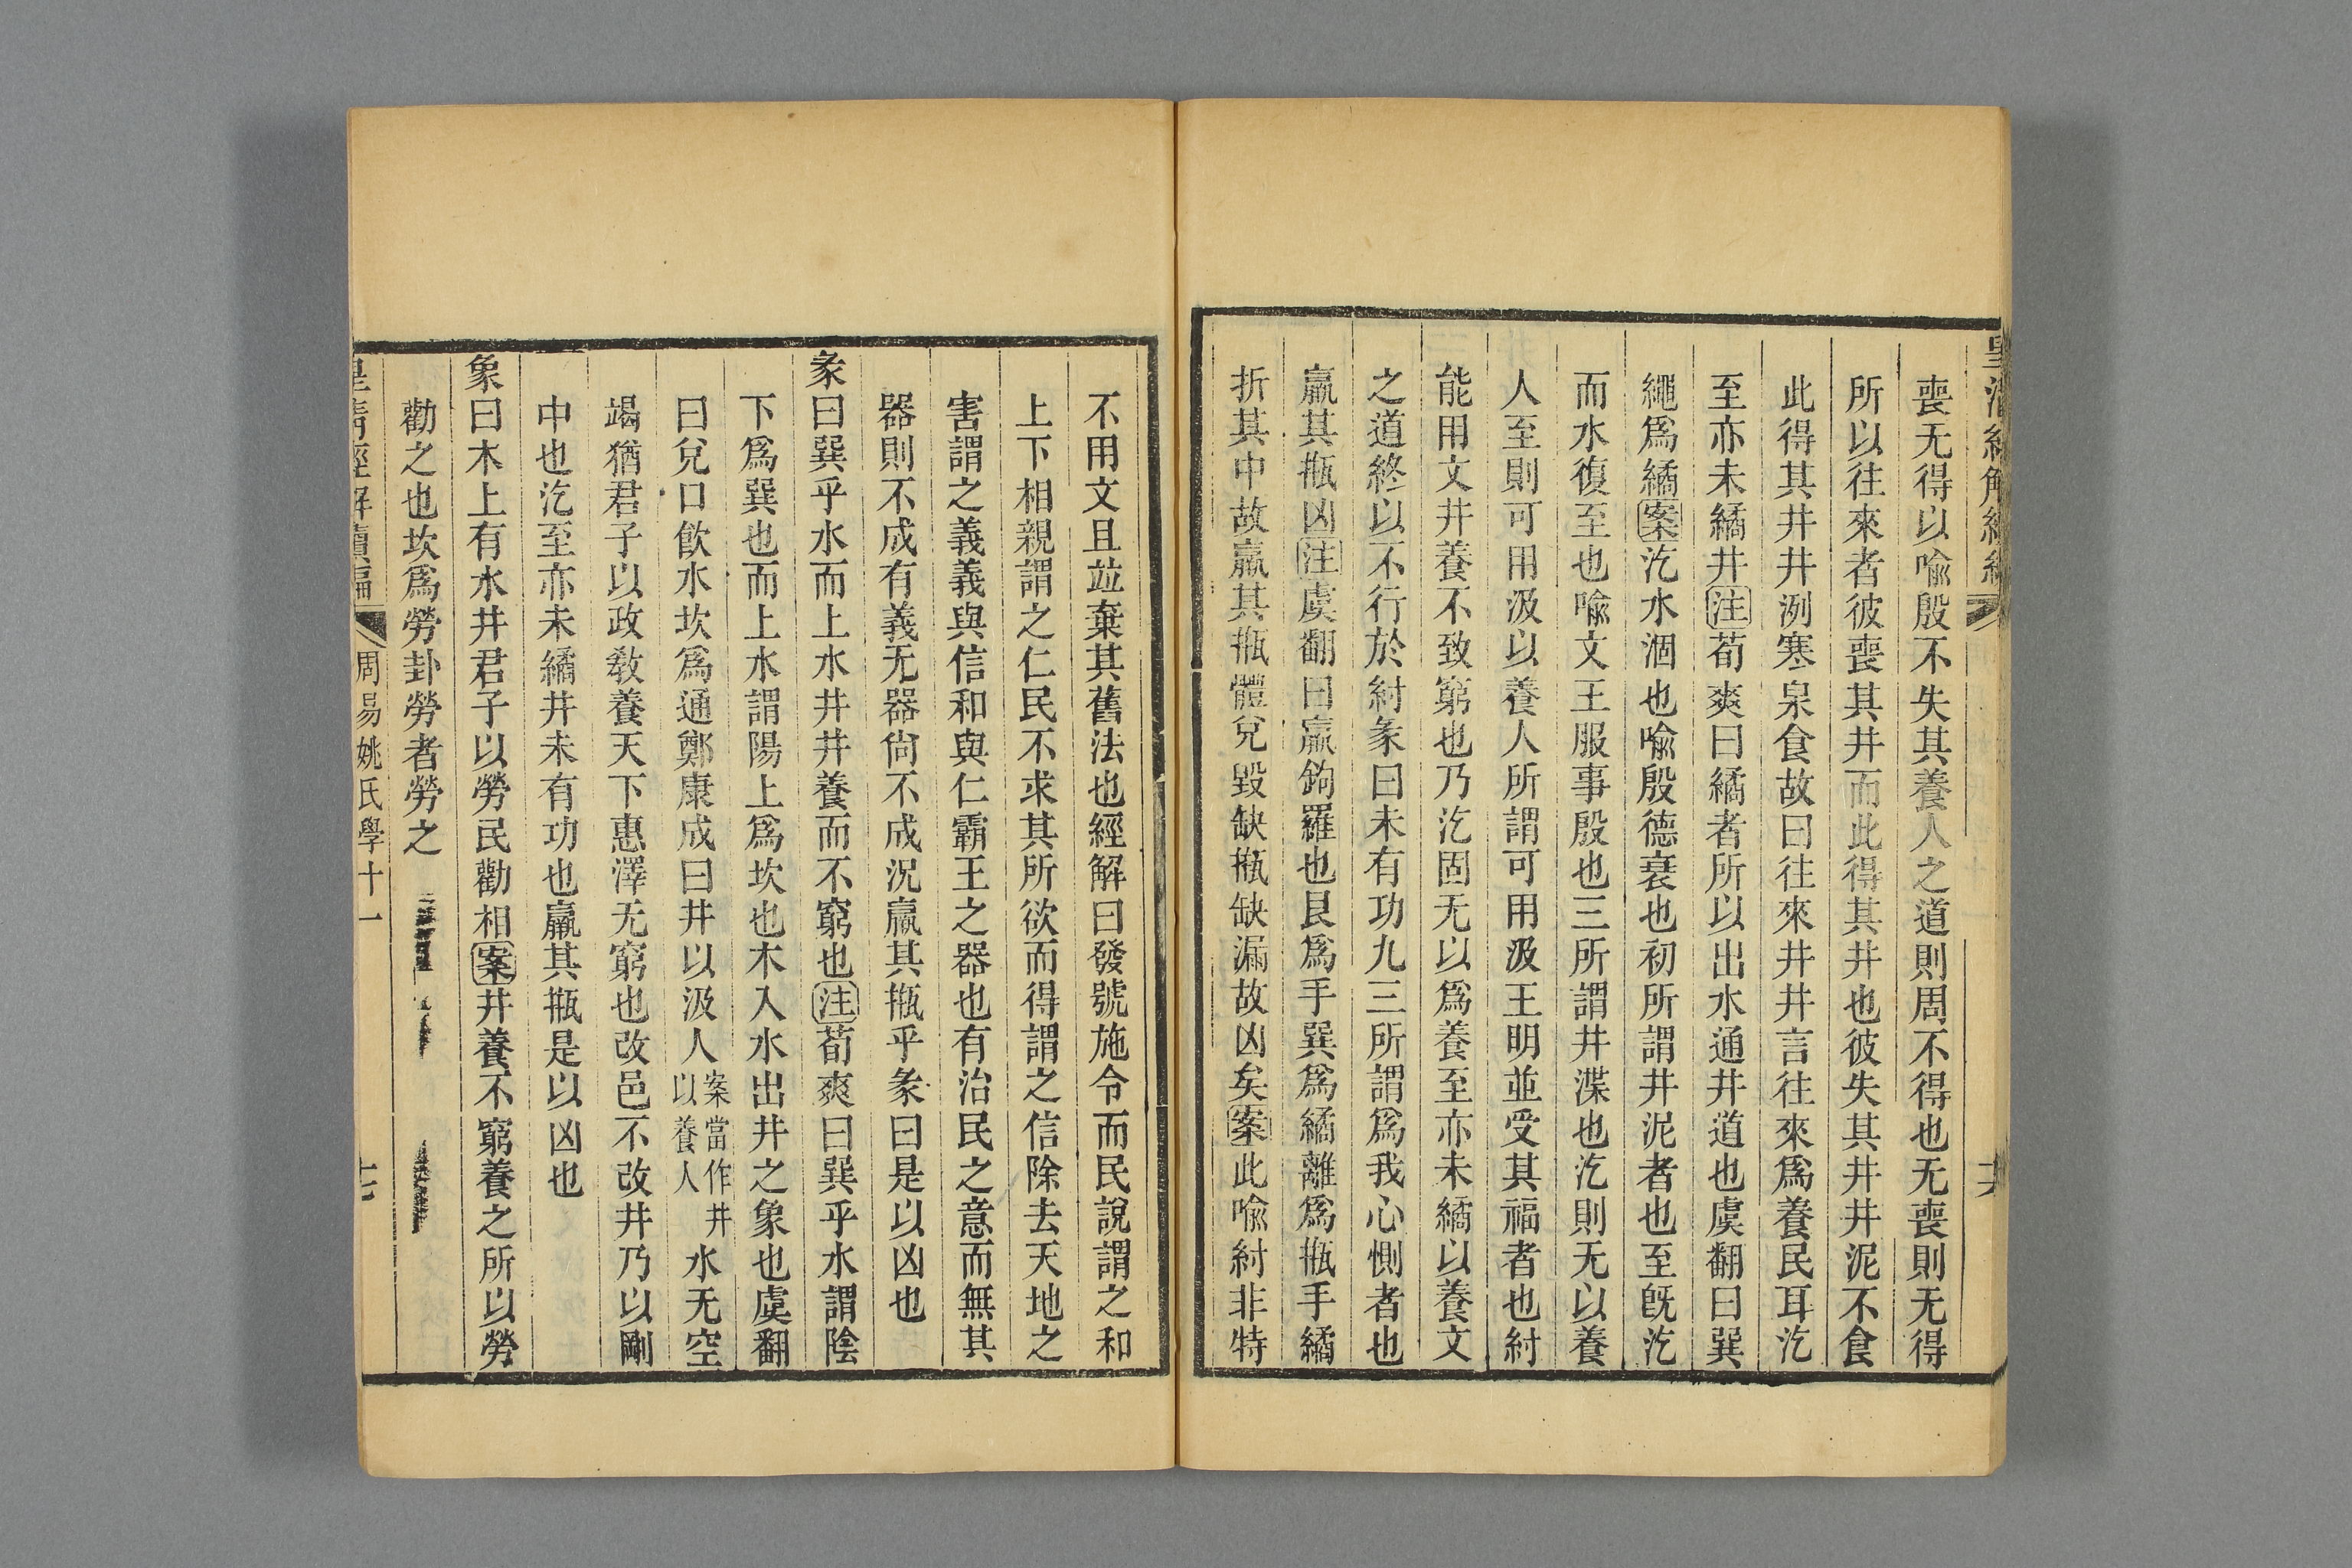 喪无得以喻殷不失其養人之道則周不得也无喪則无得
所以往來者彼喪其井而此得其井也彼失其井井泥不食
此得其井井洌寒泉食故曰往來井井言往來爲養民耳汔
至亦未繘井注荀爽曰繘者所以出水通井道也虞翻曰巽
繩爲繘案汔水涸也喻殷德衰也初所謂井泥者也至旣汔
而水復至也喻文王服事殷也三所謂井渫也汔則无以養
人至則可用汲以養人所謂可用汲王明並受其福者也紂
能用文井養不致窮也乃汔固无以爲養至亦未繘以養文
之道終以不行於紂彖曰未有功九三所謂爲我心惻者也
羸其瓶凶注虞翻曰羸鉤羅也艮爲手巽爲繘離爲瓶手繘
折其中故羸其瓶體兌毀缺瓶缺漏故凶矣案此喻紂非特
不用文且竝棄其舊法也經解曰發號施令而民說謂之和
上下相親謂之仁民不求其所欲而得謂之信除去天地之
害謂之義義與信和與仁霸王之器也有治民之意而無其
器則不成有義无器尙不成況羸其瓶乎彖曰是以凶也
彖曰巽乎水而上水井井養而不窮也注荀爽曰巽乎水謂陰
下爲巽也而上水謂陽上爲坎也木入水出井之象也虞翻
曰兌口飮水坎爲通鄭康成曰井以汲人案當作井以養人水无空
竭猶君子以政敎養天下惠澤无窮也改邑不改井乃以剛
中也汔至亦未繘井未有功也羸其瓶是以凶也
象曰木上有水井君子以勞民勸相案井養不窮養之所以勞
勸之也坎爲勞卦勞者勞之
皇淸經解續編 周易姚氏學十一 七